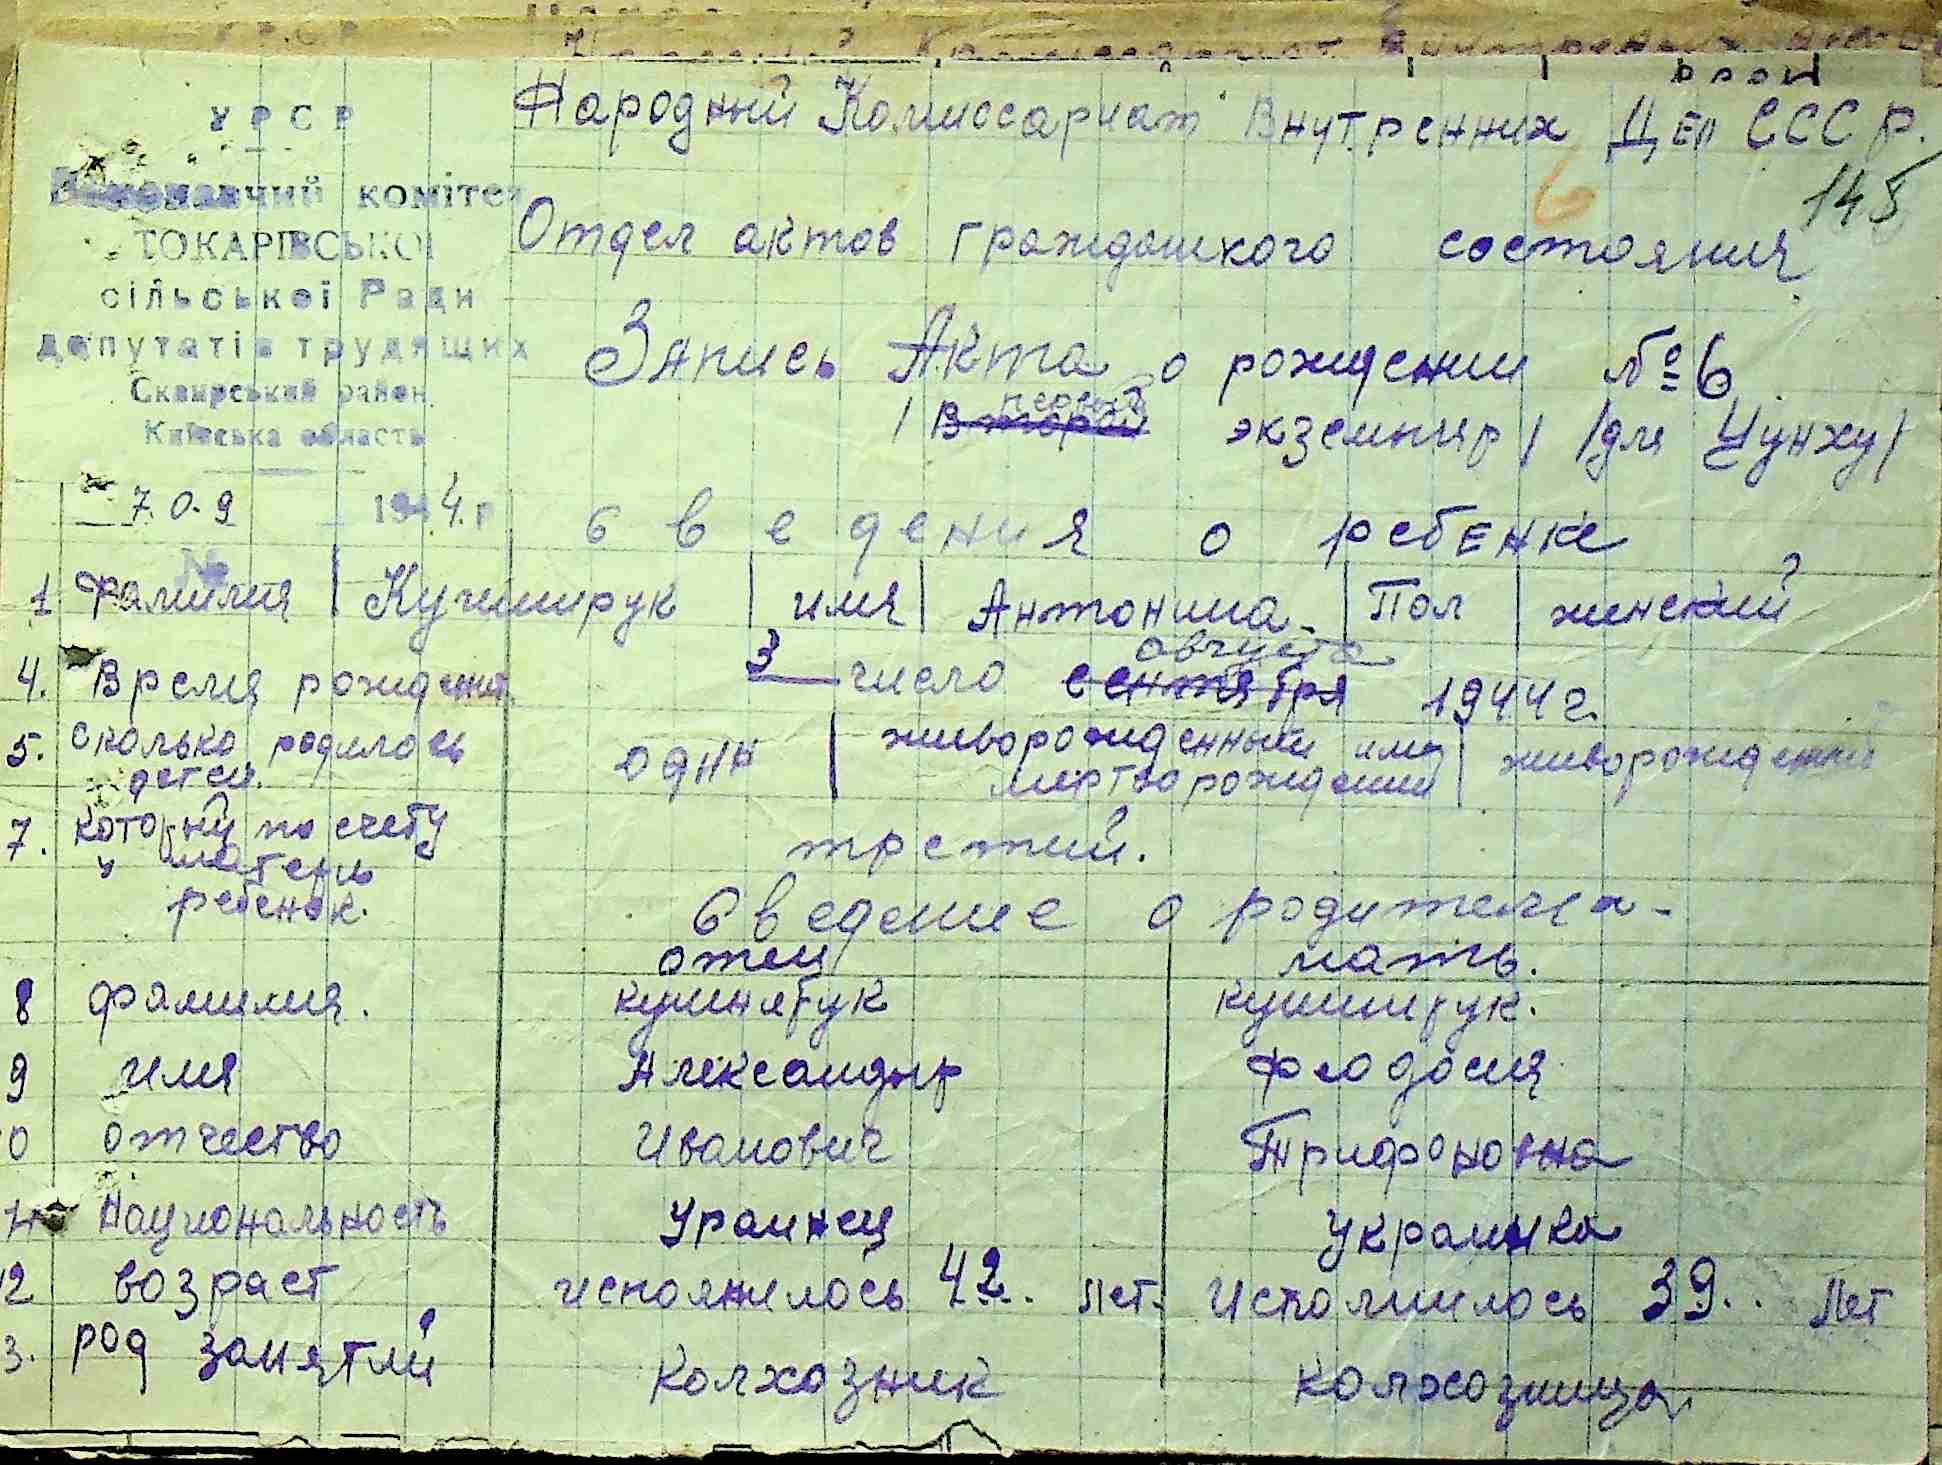 УРСР
Виконавчий комітет
ТОКАРІВСЬКОЇ
сільської Ради
депутатів трудящих
Сквирський район
Київська область
7.0.9 1944.р
№
Народний Комиссариат Внутренних Дел СССР.
6 145
Отдел актов гражданского состояния
Запись Акта о рождении №6
первый
/Второй экземпляр/ /для Цунху/
Сведения о ребенке
1 фамилия | Кушнирук | имя | Антонина. | Пол | женский
августа
4. Время рождения 3 число сентября 1944 г.
5. сколько родилось детей. одна | живорожденный или мертворождений | живорожденний
7. который по счету
у матери
ребенок. третий.
Сведение о родителя-
отец мать.
8 фамилия. кушнярук кушнирук.
9 имя Александир Феодосия
0 отчество Иванович Трифоновна
Национальность Ураинец украинка
12 возраст исполнилось 42. лет. Исполнилось 39.. лет
3. род занятли колхозник колхозница.